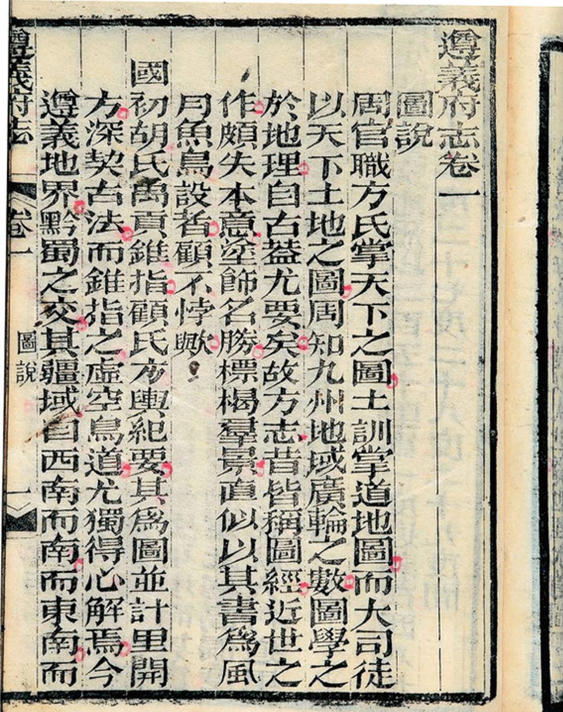 遵義府志卷一
圖說
周官職方氏掌天下之圖土訓掌道地圖而大司徒
以天下土地之圖周知九州地域廣輪之數圖學之
於地理自古葢尤要矣故方志昔皆稱圖經近世之
作頗失本意塗飾名勝標楬羣景直似以其書爲風
月魚鳥設者顧不悖歟
國初胡氏禹貢錐指顧氏方輿紀要其爲圖並計里開
方深契古法而錐指之虛空鳥道尤獨得心解焉今
遵義地界黔蜀之交其疆域自西南而南而東南而
遵義府志
卷一
圖說
一